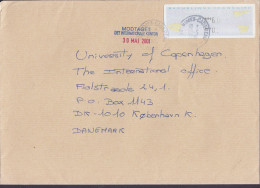 MODTAGET
30 MAJ 2001
University of Copenhagen
The International Office
Fiolstraede 24,1.
P.O. Box 1143
DK-1010 København K.
DANEMARK